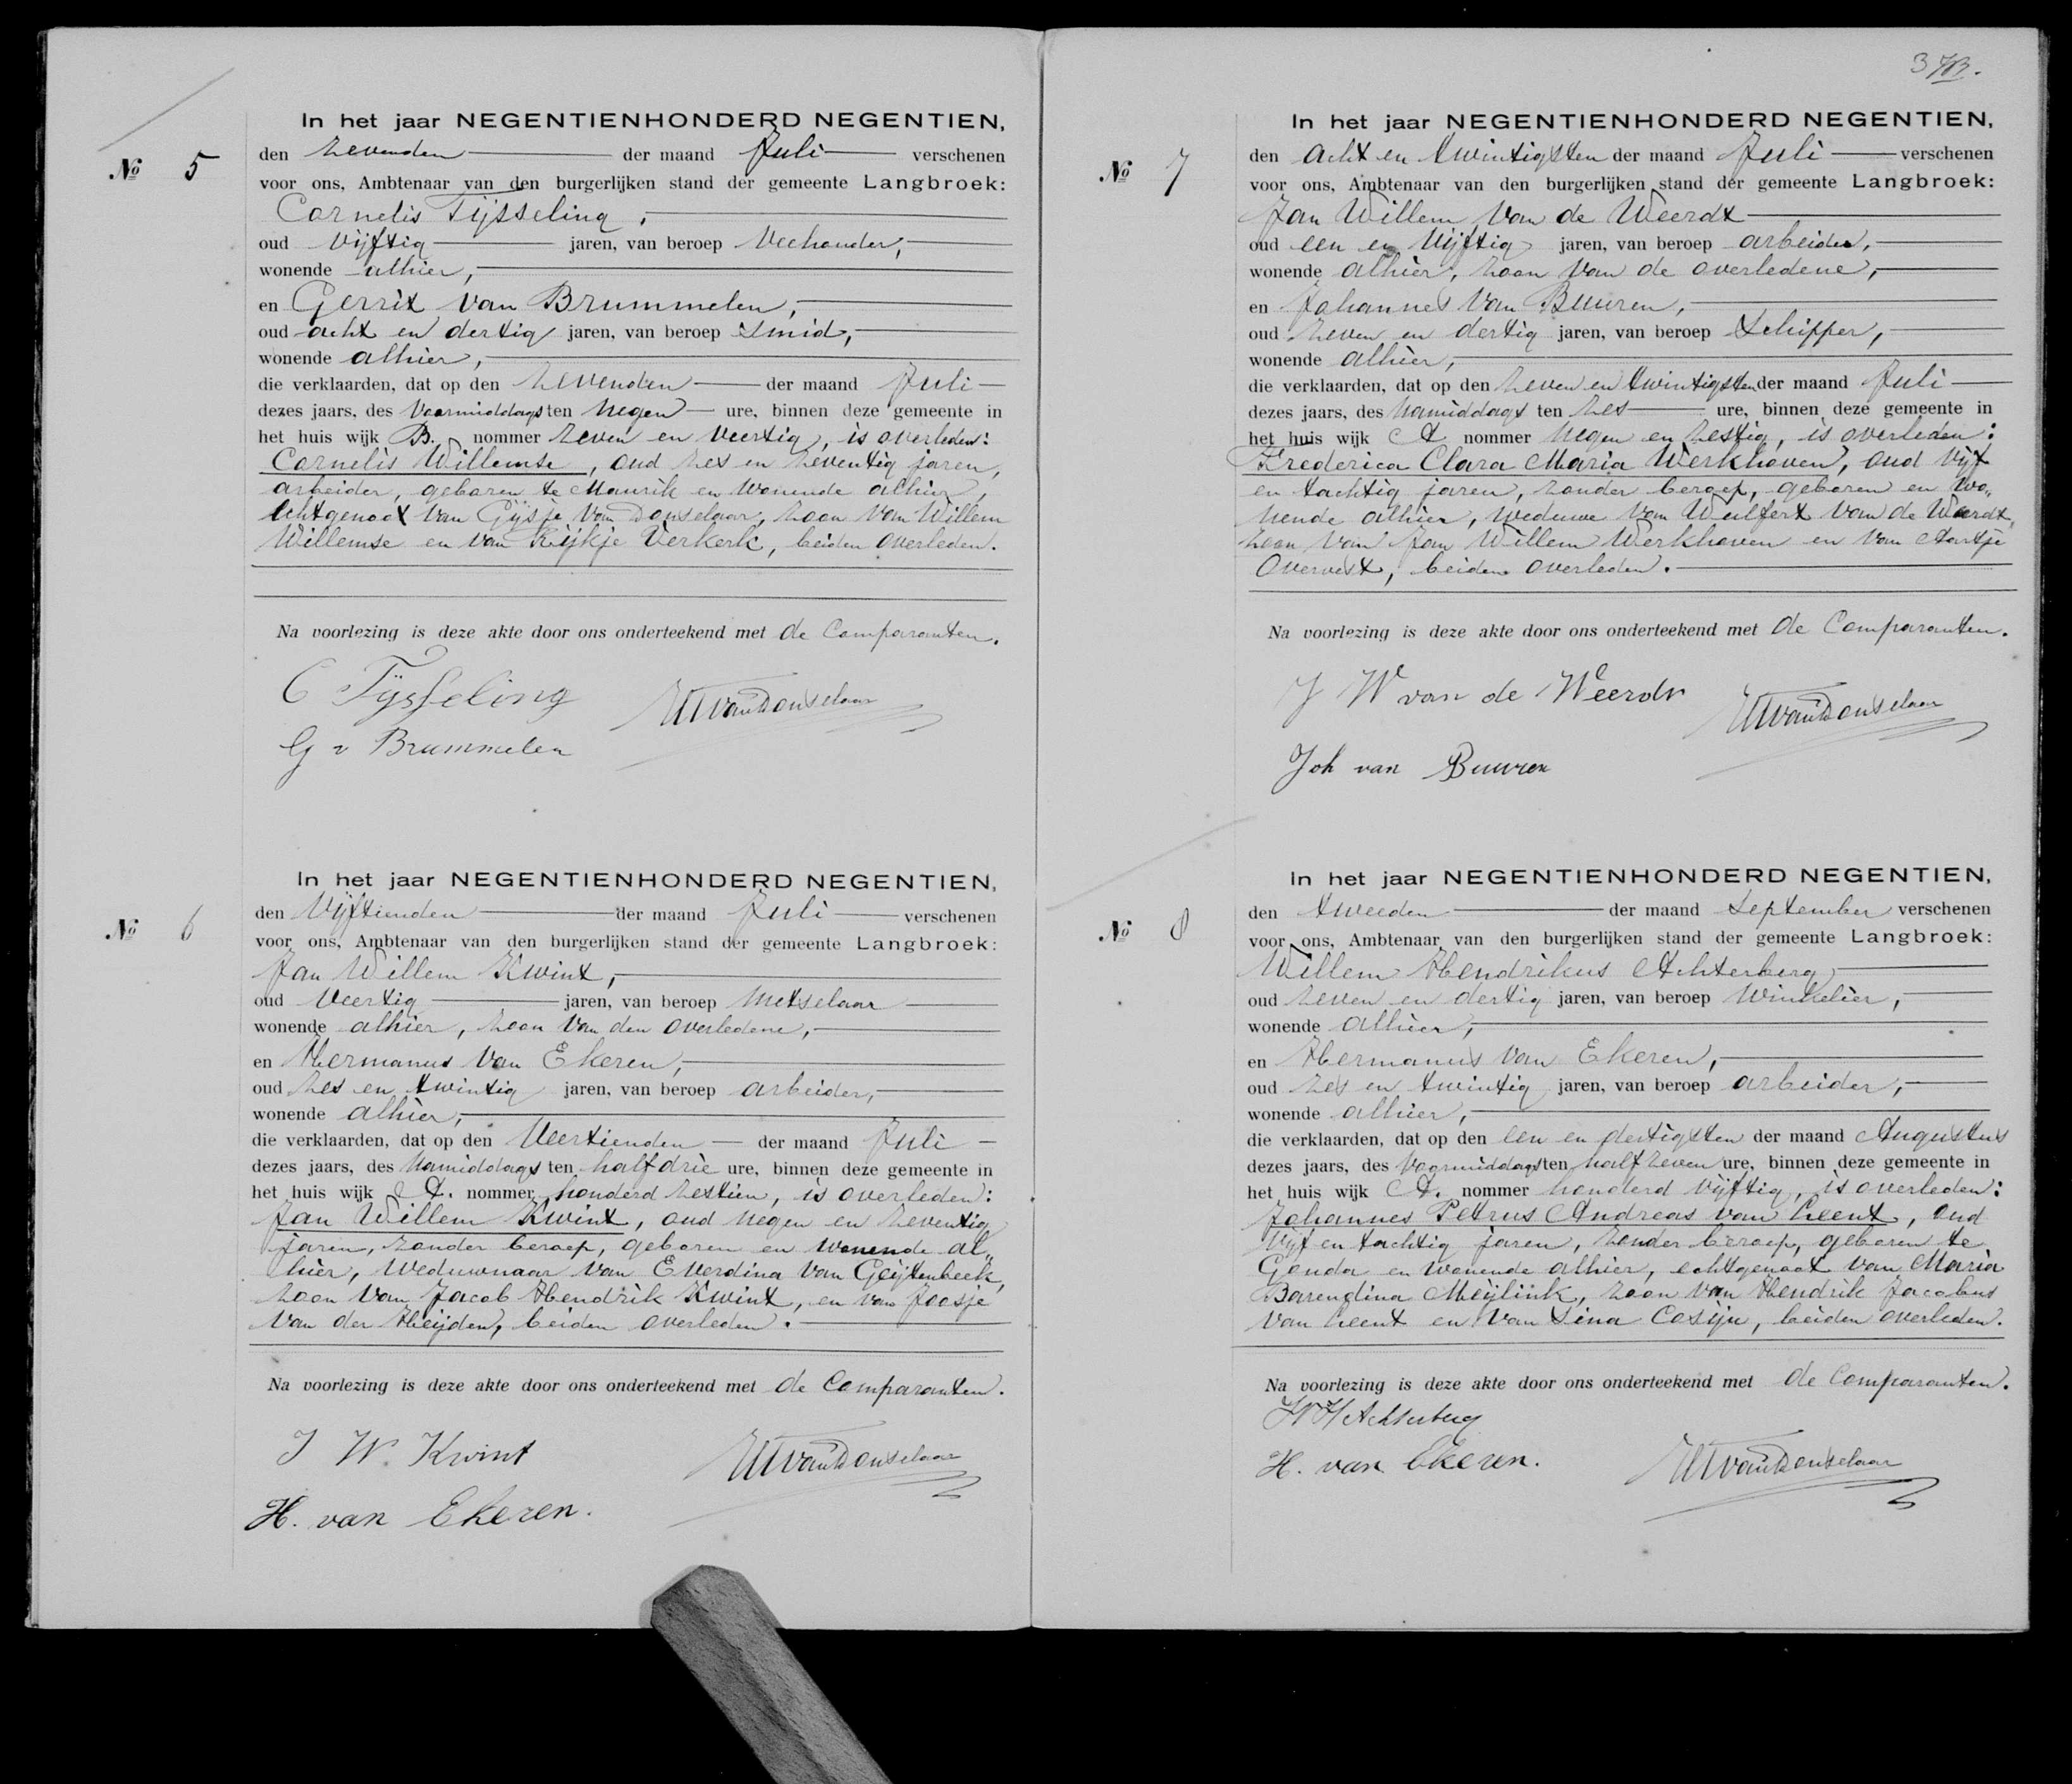 In het jaar NEGENTIENHONDERD NEGENTIEN,
No 5
den zevenden der maand Juli verschenen
voor ons, Ambtenaar van den burgerlijken stand der gemeente Langbroek:
Cornelis Tijsseling,
oud vijftig jaren, van beroep veehouder,
wonende alhier,
en Gerrit van Brummelen,
oud acht en dertig jaren, van beroep smid,
wonende alhier,
die verklaarden, dat op den zevenden der maand Juli
dezes jaars, des voormiddags ten negen ure, binnen deze gemeente in
het huis wijk B. nommer zeven en veertig, is overleden:
Cornelis Willemse, oud zes en zeventig jaren,
arbeider, geboren te Maurik en wonende alhier,
echtgenoot van Gijsje van Donselaar, zoon van Willem
Willemse en van Rijkje Verkerk, beiden overleden.
Na voorlezing is deze akte door ons onderteekend met de Comparanten.
C Tijsseling
vanDonselaar
G v Brummelen
In het jaar NEGENTIENHONDERD NEGENTIEN,
No 6
den vijftienden der maand Juli verschenen
voor ons, Ambtenaar van den burgerlijken stand der gemeente Langbroek:
Jan Willem Kwint,
oud veertig jaren, van beroep metselaar
wonende alhier, zoon van den overledene,
en Hermanus van Ekeren,
oud zes en twintig jaren, van beroep arbeider,
wonende alhier,
die verklaarden, dat op den veertienden der maand Juli
dezes jaars, des namiddags ten half drie ure, binnen deze gemeente in
het huis wijk A. nommer honderd zestien, is overleden:
Jan Willem Kwint, oud negen en zeventig
jaren, zonder beroep, geboren en wonende al„
hier, weduwnaar van Everdina van Geijtenbeek,
zoon van Jacob Hendrik Kwint, en van Joosje
van der Heijden, beiden overleden.
Na voorlezing is deze akte door ons onderteekend met de Comparanten.
J W. Kwint
vanDonselaar
H. van Ekeren.
3
In het jaar NEGENTIENHONDERD NEGENTIEN,
No 7
den acht en twintigsten der maand Juli verschenen
voor ons, Ambtenaar van den burgerlijken stand der gemeente Langbroek:
Jan Willem van de Weerdt
oud een en vijftig jaren, van beroep arbeider,
wonende alhier, zoon van de overledene,
en Johannes van Buuren,
oud zeven en dertig jaren, van beroep schipper,
wonende alhier,
die verklaarden, dat op den zeven en twintigsten der maand Juli
dezes jaars, des namiddags ten zes ure, binnen deze gemeente in
het huis wijk A nommer negen en zestig, is overleden:
Frederica Clara Maria Werkhoven, oud vijf
en tachtig jaren, zonder beroep, geboren en wo„
nende alhier, weduwe van Wulfert van de Weerdt,
zoon van Jan Willem Werkhoven en van Aartje
Overvest, beiden overleden.
Na voorlezing is deze akte door ons onderteekend met de Comparanten.
J W van de Weerdt
vanDonselaar
Joh van Buuren
In het jaar NEGENTIENHONDERD NEGENTIEN,
No 8
den tweeden der maand September verschenen
voor ons, Ambtenaar van den burgerlijken stand der gemeente Langbroek:
Willem Hendrikus Achterberg
oud zeven en dertig jaren, van beroep winkelier,
wonende alhier,
en Hermanus van Ekeren,
oud zes en twintig jaren, van beroep arbeider,
wonende alhier,
die verklaarden, dat op den een en dertigsten der maand Augustus
dezes jaars, des voormiddags ten half zeven ure, binnen deze gemeente in
het huis wijk A. nommer honderd vijftig, is overleden:
Johannes Petrus Andreas van Leent, oud
vijf en tachtig jaren, zonder beroep, geboren te
Gouda en wonende alhier, echtgenoot van Maria
Barendina Meijlink, zoon van Hendrik Jacobus
van Leent en van Sina Cosijn, beiden overleden.
Na voorlezing is deze akte door ons onderteekend met de Comparanten.
W H Achterberg
H. van Ekeren.
vanDonselaar